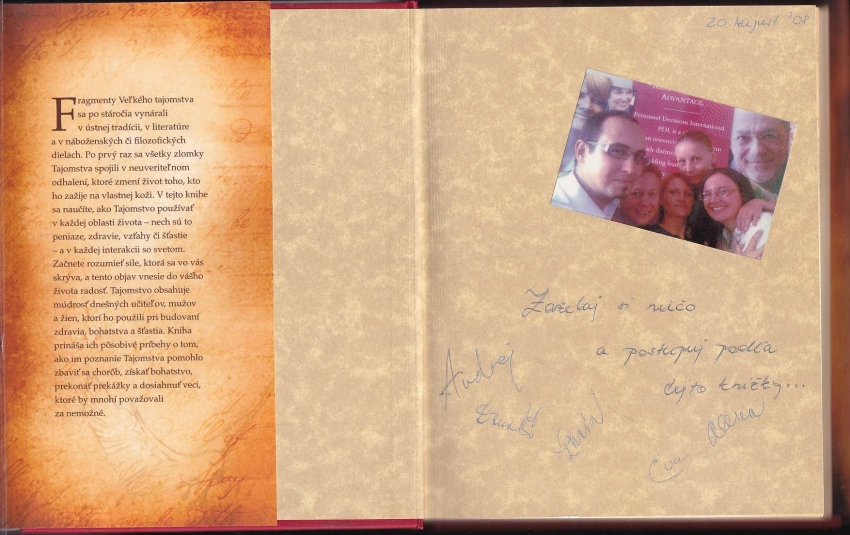 Fragmenty Veľkého tajomstva
sa po stáročia vynárali
v ústnej tradícii, v literatúre
a v náboženských či filozofických
dielach. Po prvý raz sa všetky zlomky
Tajomstva spojili v neuveriteľnom
odhalení, ktoré zmení život toho, kto
ho zažije na vlastnej koži. V tejto knihe
sa naučíte, ako Tajomstvo používať
v každej oblasti života – nech sú to
peniaze, zdravie, vzťahy či šťastie
– a v každej interakcii so svetom.
Začnete rozumieť sile, ktorá sa vo vás
skrýva, a tento objav vnesie do vášho
života radosť. Tajomstvo obsahuje
múdrosť dnešných učiteľov, mužov
a žien, ktorí ho použili pri budovaní
zdravia, bohatstva a šťastia. Kniha
prináša ich pôsobivé príbehy o tom,
ako im poznanie Tajomstva pomohlo
zbaviť sa chorôb, získať bohatstvo,
prekonať prekážky a dosiahnuť veci,
ktoré by mnohí považovali
za nemožné.
20. August '08
ADVANTAGE.
Personnel Decisions International,
PDI, is a
Zaželaj si niečo
a postupuj podľa
tyto knižky...
Andrej
Eva